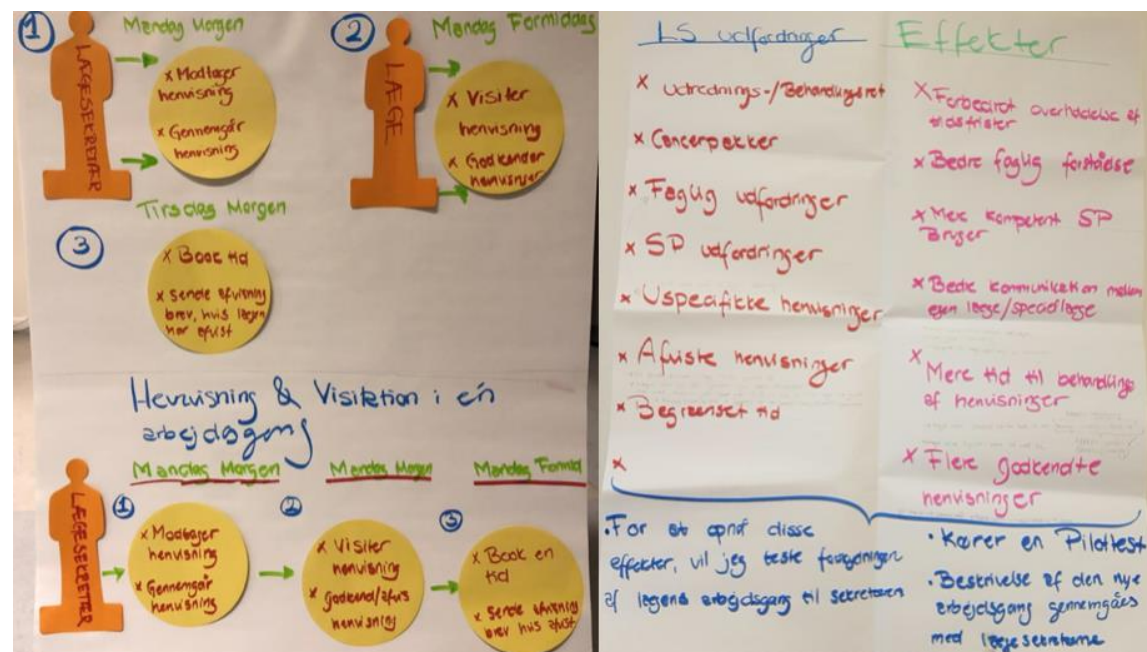 1
Mandag Morgen
LÆGESEKRETÆR
x Modtager
henvisning
x Gennemgår
henvisning
2
Mandag Formiddag
LÆGE
x Visiter
henvisning
x Godkender
henvisninger
Tirsdag Morgen
3
x Book tid
x Sende afvisning
brev, hvis lægen
har afvist
Henvisning & Visitation i én
arbejdsgang
LÆGESEKRETÆR
Mandag Morgen
1
x Modtager
henvisning
x Gennemgår
henvisning
Mandag Morgen
2
x Visiter
henvisning
x Godkend/afvis
henvisning
Mandag Formid
3
x Book en
tid
x Sende afvisning
brev hvis afvist
LS udfordringer
x Udrednings-/Behandlingsret
x Cancerpakker
x Faglig udfordringer
x SP udfordringer
x Uspecifikke henvisninger
x Afviste henvisninger
x Begrænset tid
x
Effekter
x Forbedret overholdelse af
tidsfrister
x Bedre faglig forståelse
x Mere kompetent SP
Bruger
x Bedre kommunikation mellem
egen læge/speciallæge
x Mere tid til behandling
af henvisninger
x Flere godkendte
henvisninger
• For at opnå disse
effekter, vil jeg teste
af lægens arbejdsgang til sekretæren
• Kører en Pilottest
• Beskrivelse af den nye
arbejdsgang gennemgåes
med lægesekretærne